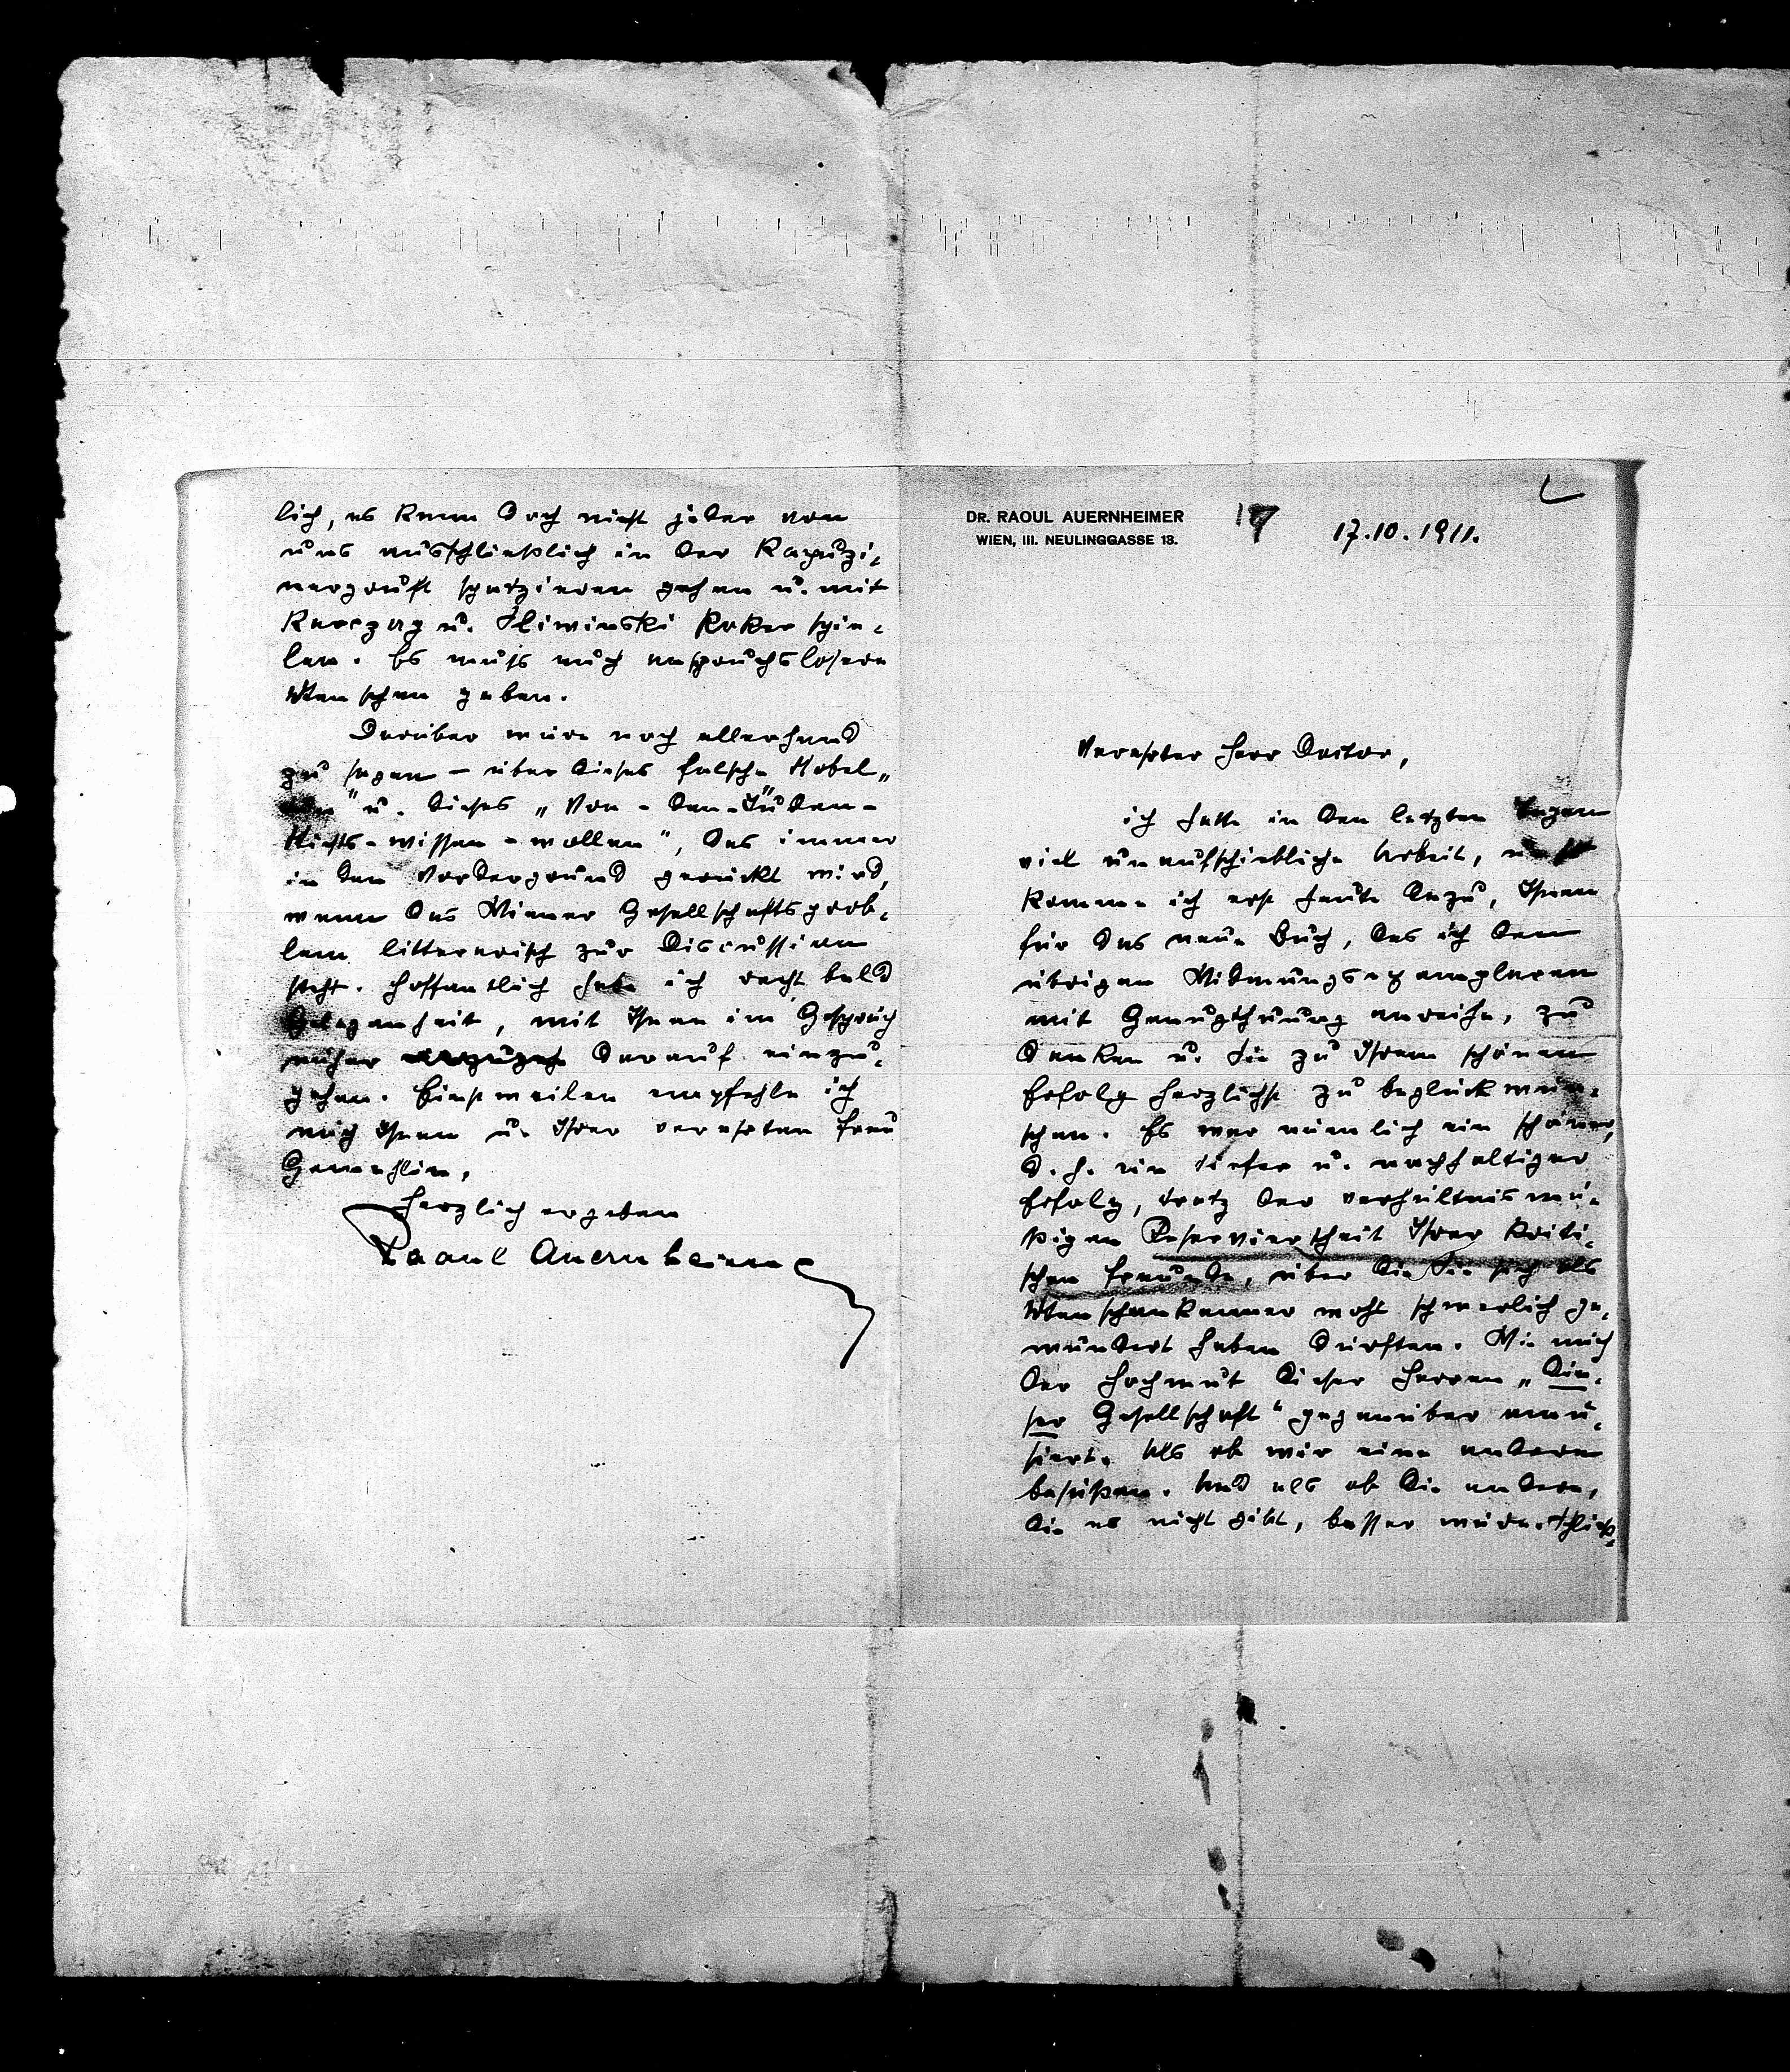 DR. RAOUL AUERNHEIMER
WIEN, III. NEULINGGASSE 13.
17
17.10.1911.
Verehrter Herr Doctor,
ich hatte in den letzten Tagen
viel unaufschiebliche Arbeit,
komme ich erst heute dazu, Ihnen
für das neue Buch, das ich den
übrigen Widmungsexemplaren
mit Genugthuung anreihe, zu
danken u. Sie zu Ihrem schönen
Erfolg herzlichst zu beglückwün-
schen. Es war nämlich ein schöner,
d. h. ein tiefer u. nachhaltiger
Erfolg, trotz der verhältnismä-
ßigen Reserviertheit Ihrer kriti-
schen Freunde, über die Sie sich als
Menschenkenner wohl schwerlich ge-
wundert haben dürften. Wie mich
der Hochmut dieser Herren „die-
ser Gesellschaft“ gegenüber amü-
siert. Als ob wir eine andere
besäßen. Und als ob die andere,
die es nicht gibt, besser wäre. Schließ-
lich, es kann doch nicht jeder von
uns ausschließlich in der Kapuzi-
nergruft spatzieren gehen u. mit
Karczag u. Sliwinski Poker spie-
len. Es muß auch anspruchslosere
Menschen geben.
Darüber wäre noch allerhand
zu sagen – über dieses falsche Nobel-
u. dieses „Von-den-Juden-
Nichts-wissen-wollen“, das immer
in den Vordergrund gerückt wird,
wenn das Wiener Gesellschaftsprob-
lem litterarisch zur Discussion
steht. Hoffentlich habe ich recht bald
Gelegenheit, mit Ihnen im Gespräch
näher darauf einzu-
gehen. Einstweilen empfehle ich
mich Ihnen u. Ihrer verehrten Frau
Gemahlin,
herzlich ergeben
Raoul Auernheimer